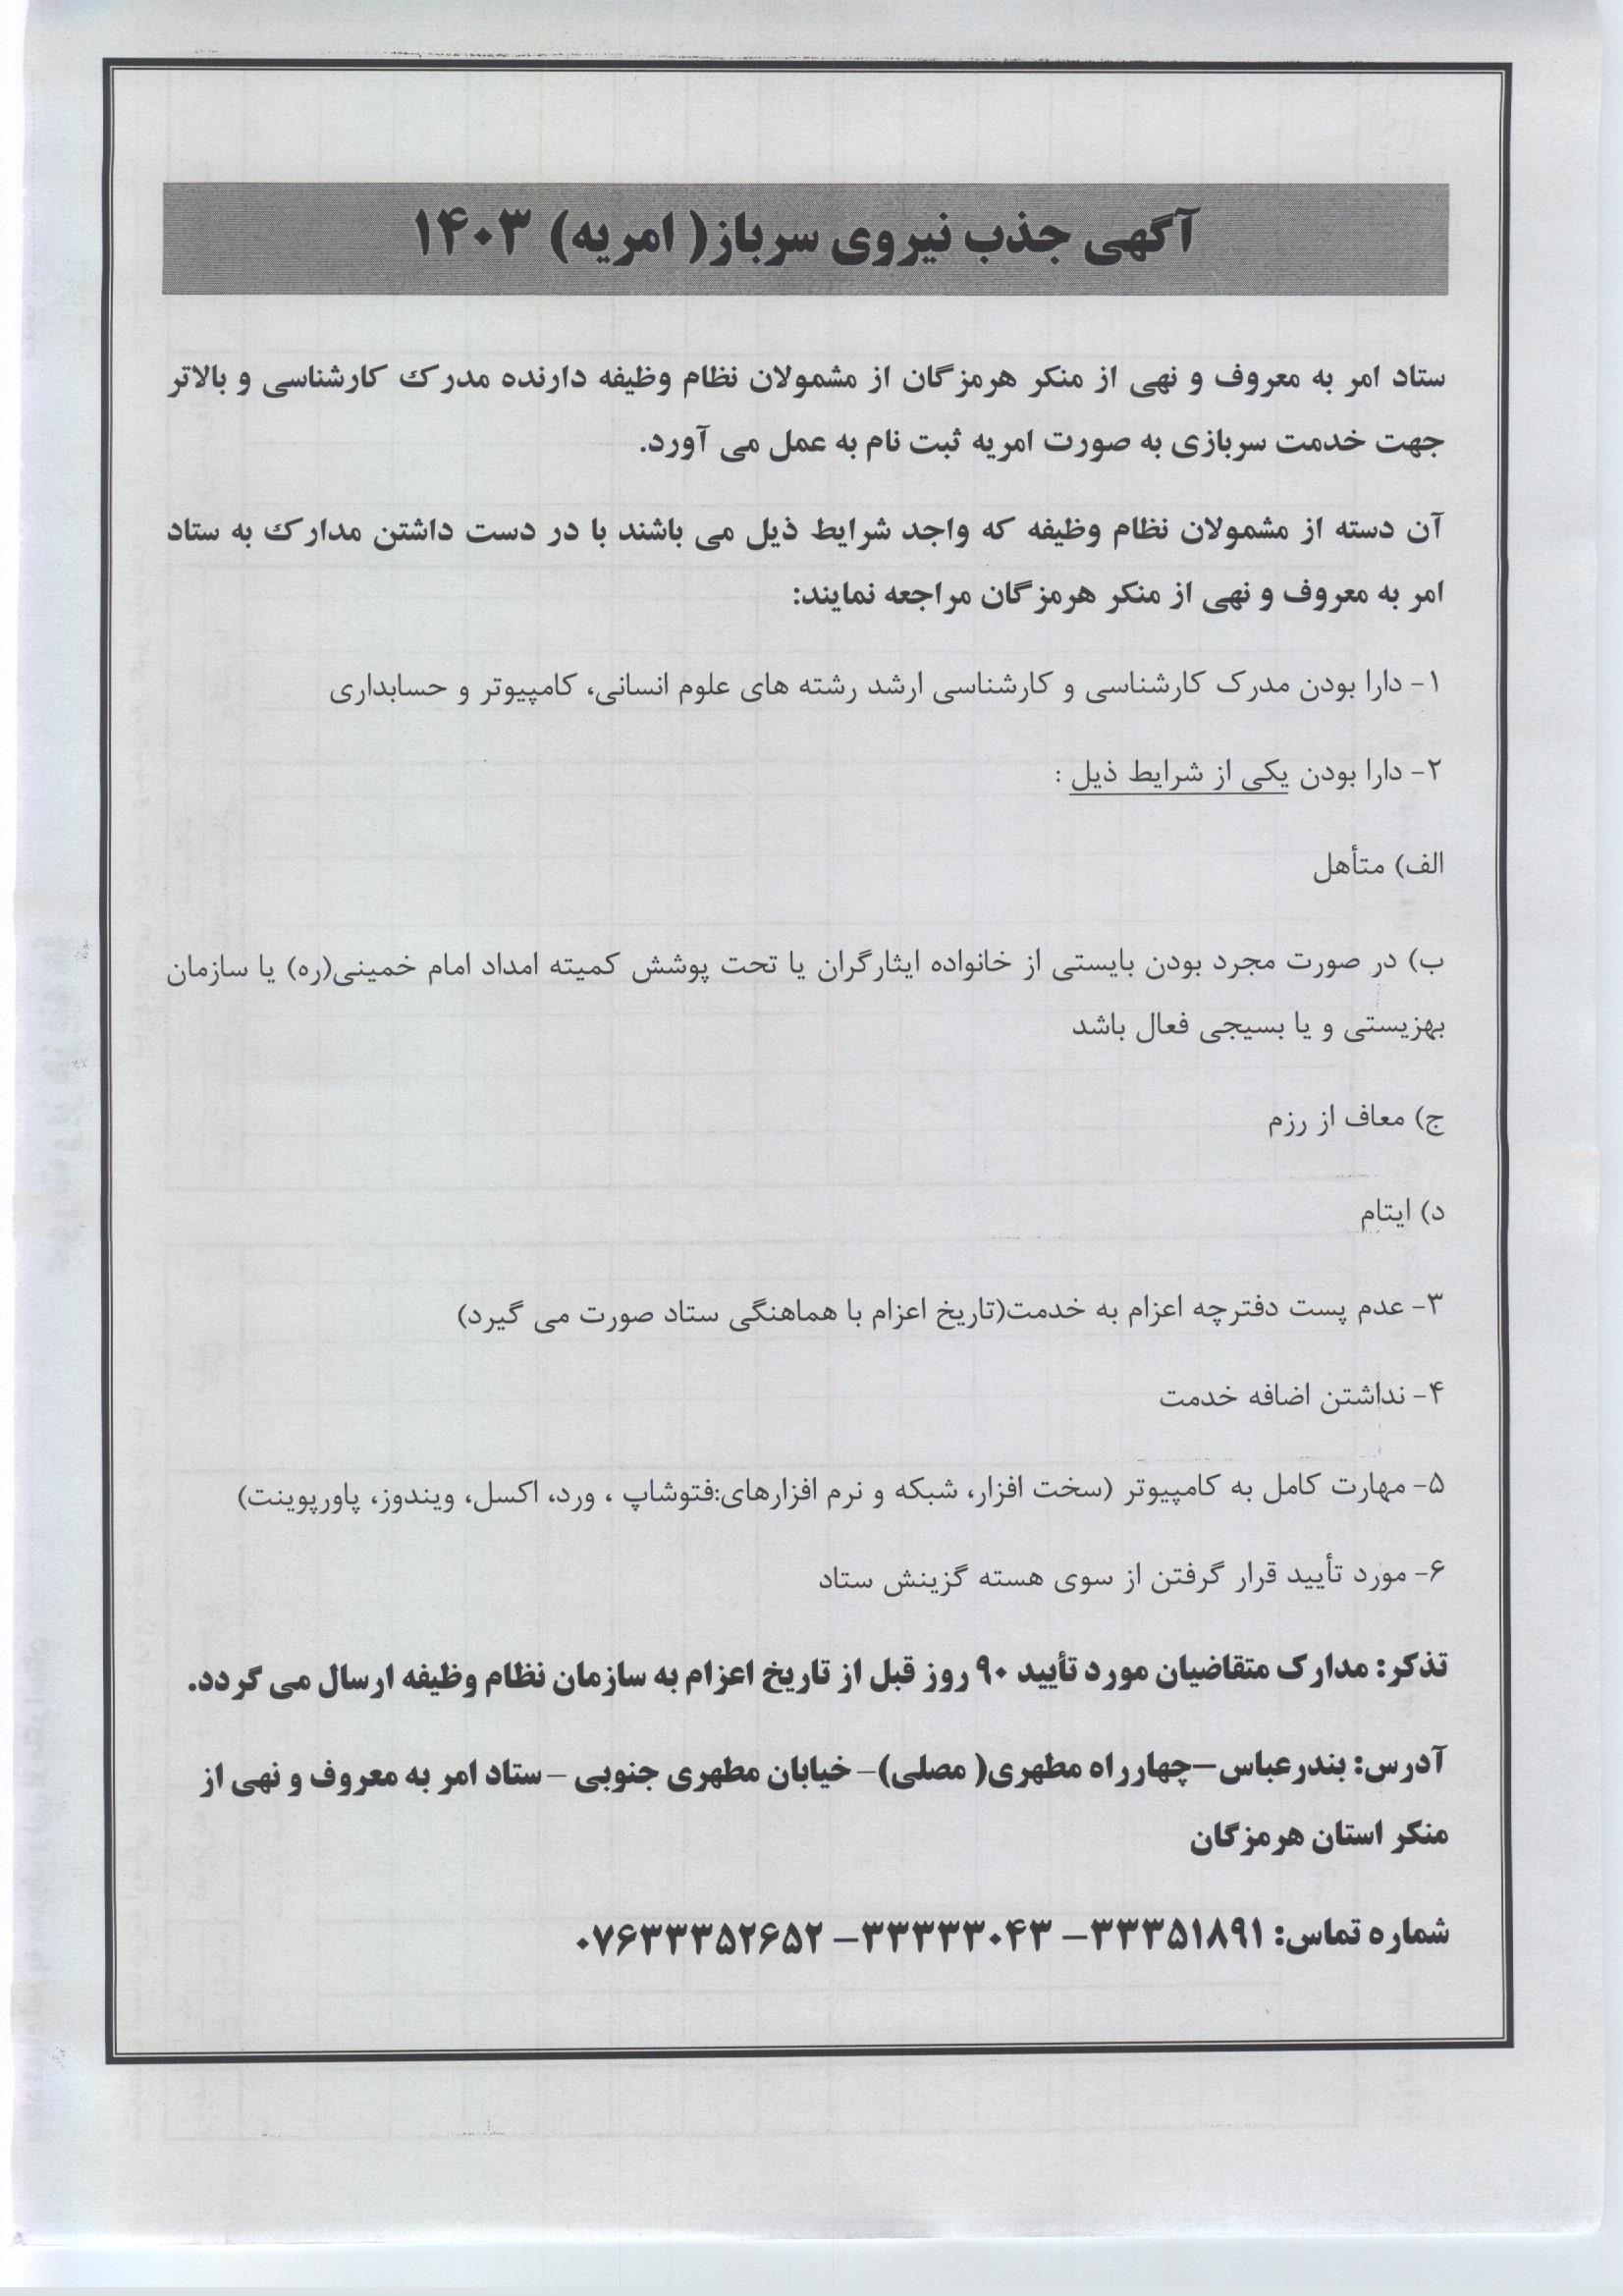 آگهی جذب نیروی سرباز( امریه) ۱۴۰۳
ستاد امر به معروف و نهی از منکر هرمزگان از مشمولان نظام وظیفه دارنده مدرک کارشناسی و بالاتر
جهت خدمت سربازی به صورت امریه ثبت نام به عمل می آورد.
آن دسته از مشمولان نظام وظیفه که واجد شرایط ذیل می باشند با در دست داشتن مدارک به ستاد
امر به معروف و نهی از منکر هرمزگان مراجعه نمایند:
۱- دارا بودن مدرک کارشناسی و کارشناسی ارشد رشته های علوم انسانی، کامپیوتر و حسابداری
۲- دارا بودن یکی از شرایط ذیل :
الف) متأهل
ب) در صورت مجرد بودن بایستی از خانواده ایثارگران یا تحت پوشش کمیته امداد امام خمینی(ره) یا سازمان
بهزیستی و یا بسیجی فعال باشد
ج) معاف از رزم
د) ایتام
۳- عدم پست دفترچه اعزام به خدمت(تاریخ اعزام با هماهنگی ستاد صورت می گیرد)
۴- نداشتن اضافه خدمت
۵- مهارت کامل به کامپیوتر (سخت افزار، شبکه و نرم افزارهای:فتوشاپ ، ورد، اکسل، ویندوز، پاورپوینت)
۶- مورد تأیید قرار گرفتن از سوی هسته گزینش ستاد
تذکر: مدارک متقاضیان مورد تأیید ۹۰ روز قبل از تاریخ اعزام به سازمان نظام وظیفه ارسال می گردد.
آدرس: بندرعباس–چهارراه مطهری( مصلی)- خیابان مطهری جنوبی – ستاد امر به معروف و نهی از
منکر استان هرمزگان
شماره تماس: ۳۳۳۵۱۸۹۱– ۳۳۳۳۳۰۴۳– ۰۷۶۳۳۳۵۲۶۵۲